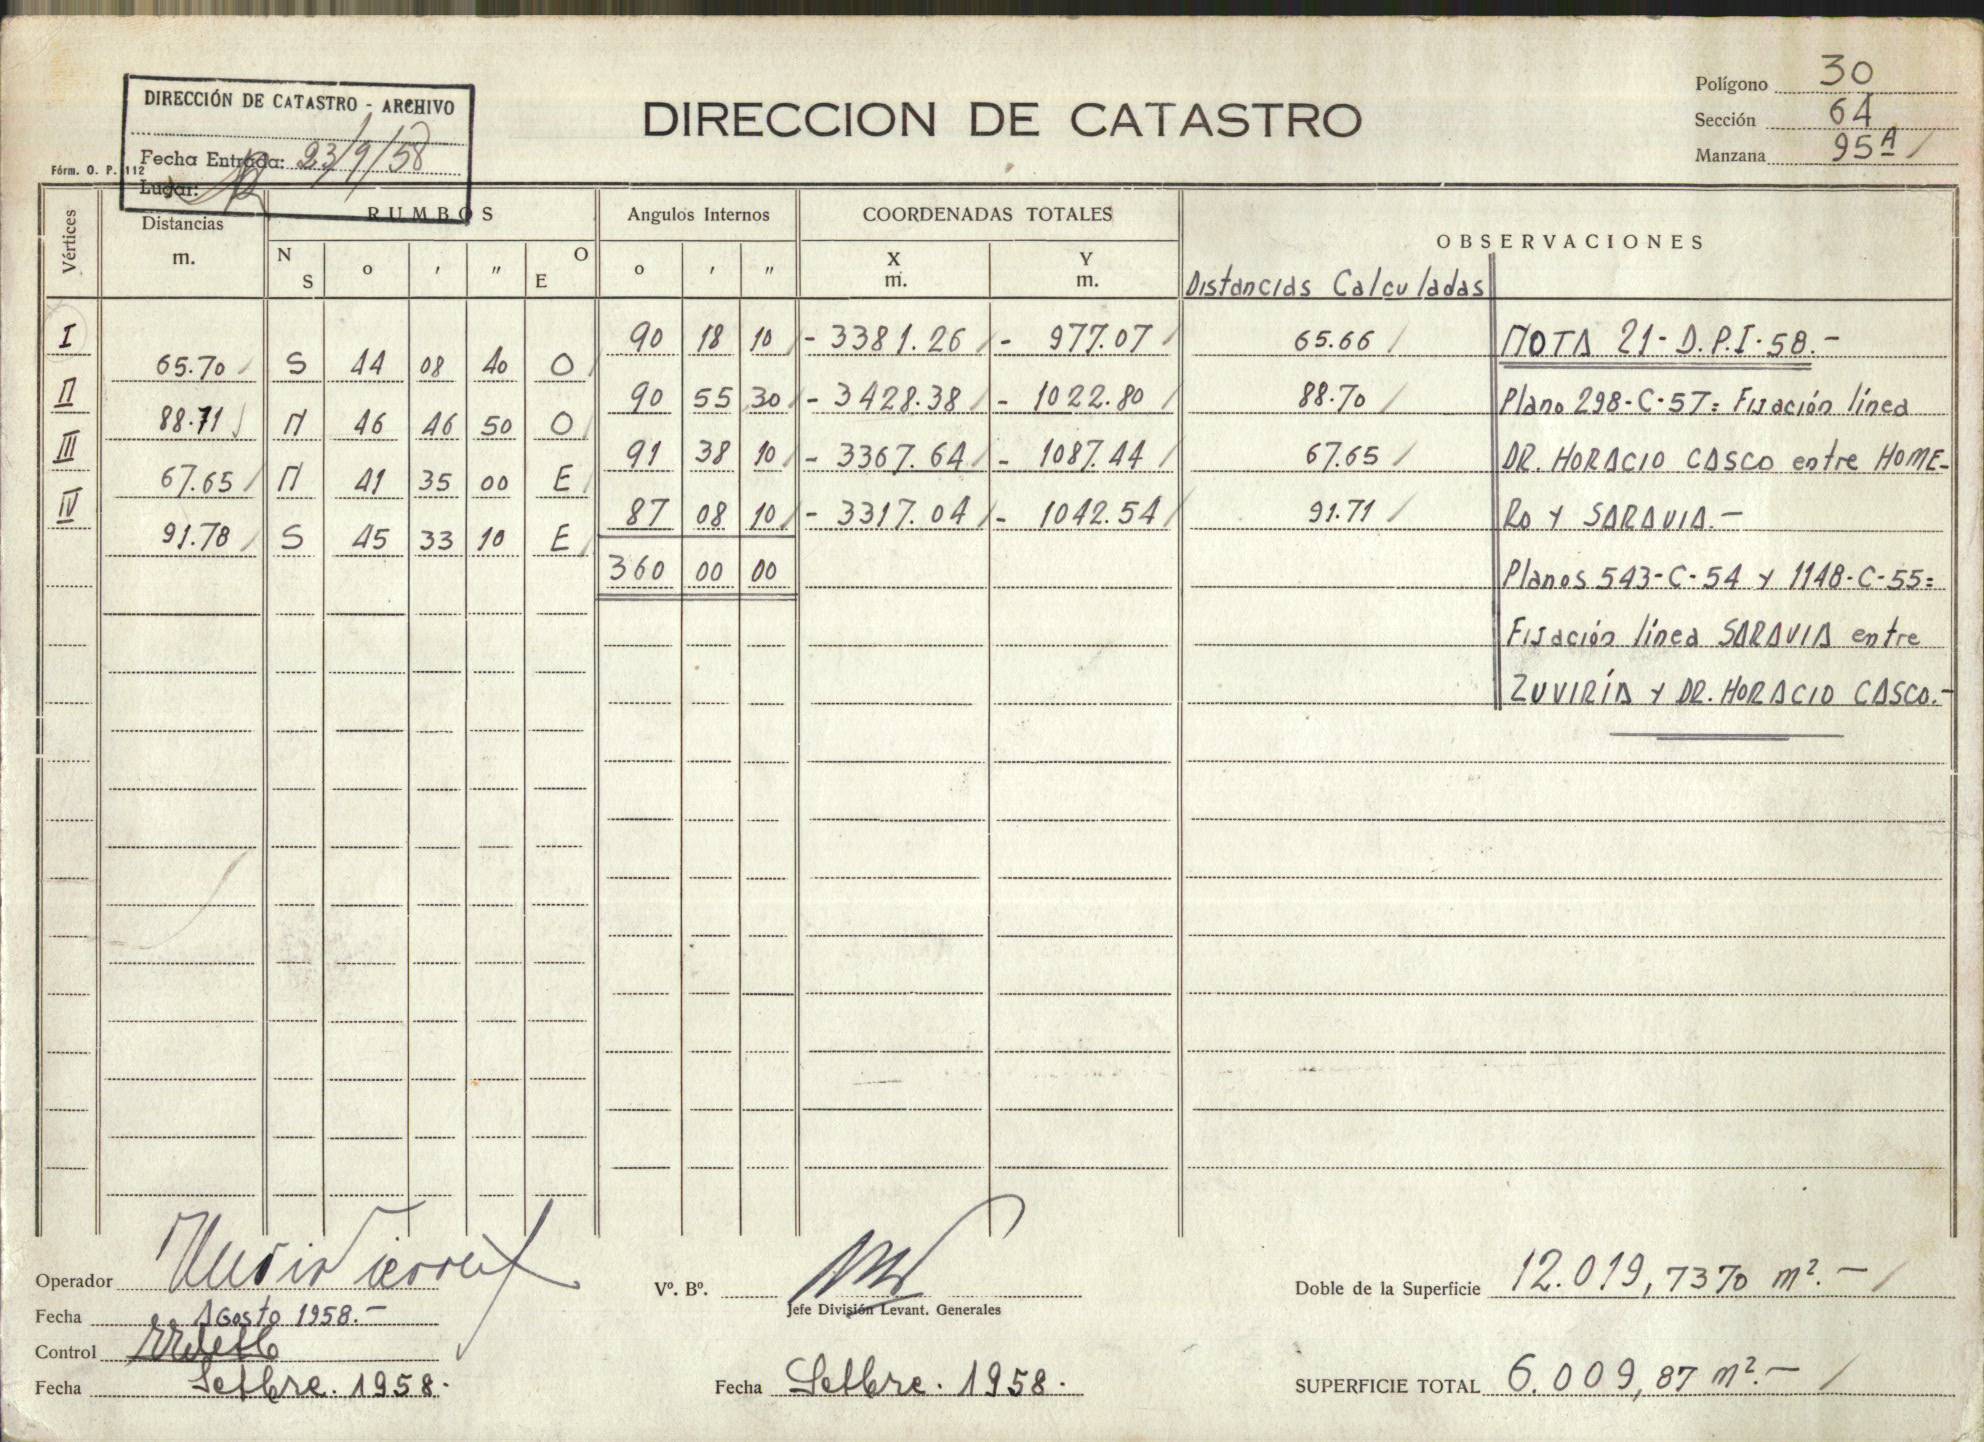 DIRECCIÓN DE CATASTRO - ARCHIVO
Fecha Entrada: 23/9/58
Lugar:
Fórm. O. P. 112
DIRECCION DE CATASTRO
Polígono 30
Sección 64
Manzana 95A
Vértices
Distancias
m.
RUMBOS
N S
o ' "
O E
Angulos Internos
o ' "
COORDENADAS TOTALES
X m.
Y m.
OBSERVACIONES
Distancias Calculadas
I 90 18 10 - 3381.26 - 977.07 65.66 NOTA 21-D.P.I-58.-
65.70 S 44 08 40 O
II 90 55 30 - 3428.38 - 1022.80 88.70 Plano 298-C-57: Fijación línea
88.71 N 46 46 50 O
III 91 38 10 - 3367.64 - 1087.44 67.65 DR. HORACIO CASCO entre HOME-
67.65 N 41 35 00 E
IV 87 08 10 - 3317.04 - 1042.54 91.71 RO Y SARAVIA.-
91.78 S 45 33 10 E
360 00 00 Planos 543-C-54 y 1148-C-55:
Fijación línea SARAVIA entre
ZUVIRÍA Y DR. HORACIO CASCO.-
Operador
Fecha Agosto 1958.-
Control
Fecha Setbre. 1958.
Vº. Bº.
Jefe División Levant. Generales
Fecha Setbre. 1958.
Doble de la Superficie 12.019,7370 m².-
SUPERFICIE TOTAL 6.009,87 m².-